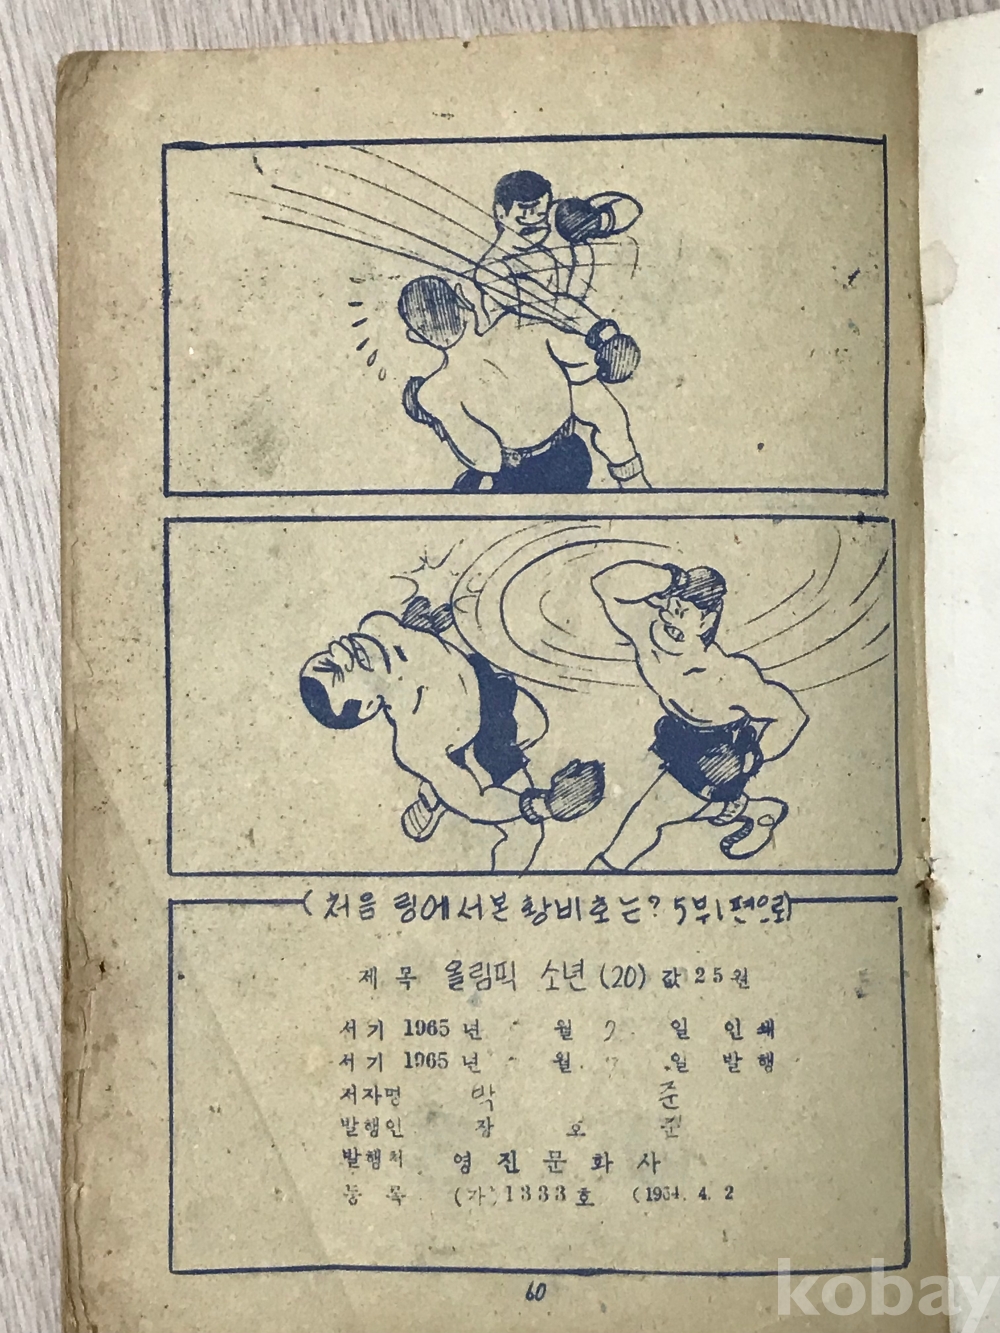 (처음 링에 서본 황비호는? 5부1편으로)
제 목 올림픽 소년 (20) 값 25원
서기 1965년 월 일 인쇄
서기 1965년 월 일 발행
저자명 박 준
발행인 장 호
발행처 영 진 문 화 사
등 록 (가) 1333호 (1964. 4. 2
60
kobay